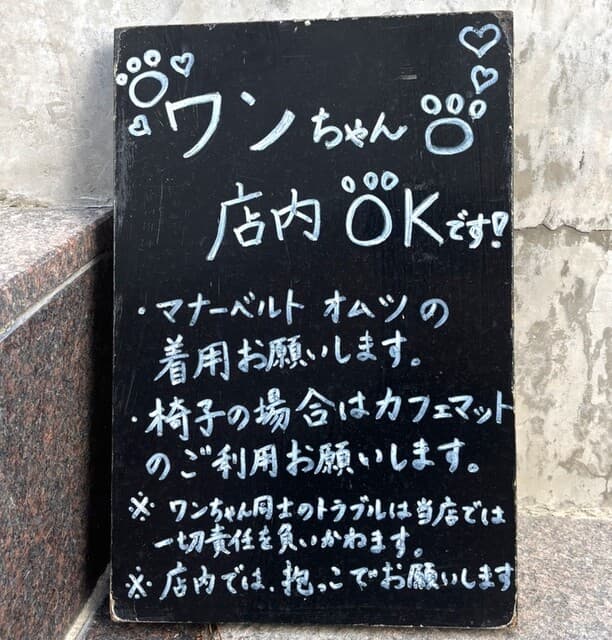 ワンちゃん
店内OKです!
・マナーベルト オムツの
着用お願いします。
・椅子の場合はカフェマット
のご利用お願いします。
※ ワンちゃん同士のトラブルは当店では
一切責任を負いかねます。
※ 店内では、抱っこでお願いします